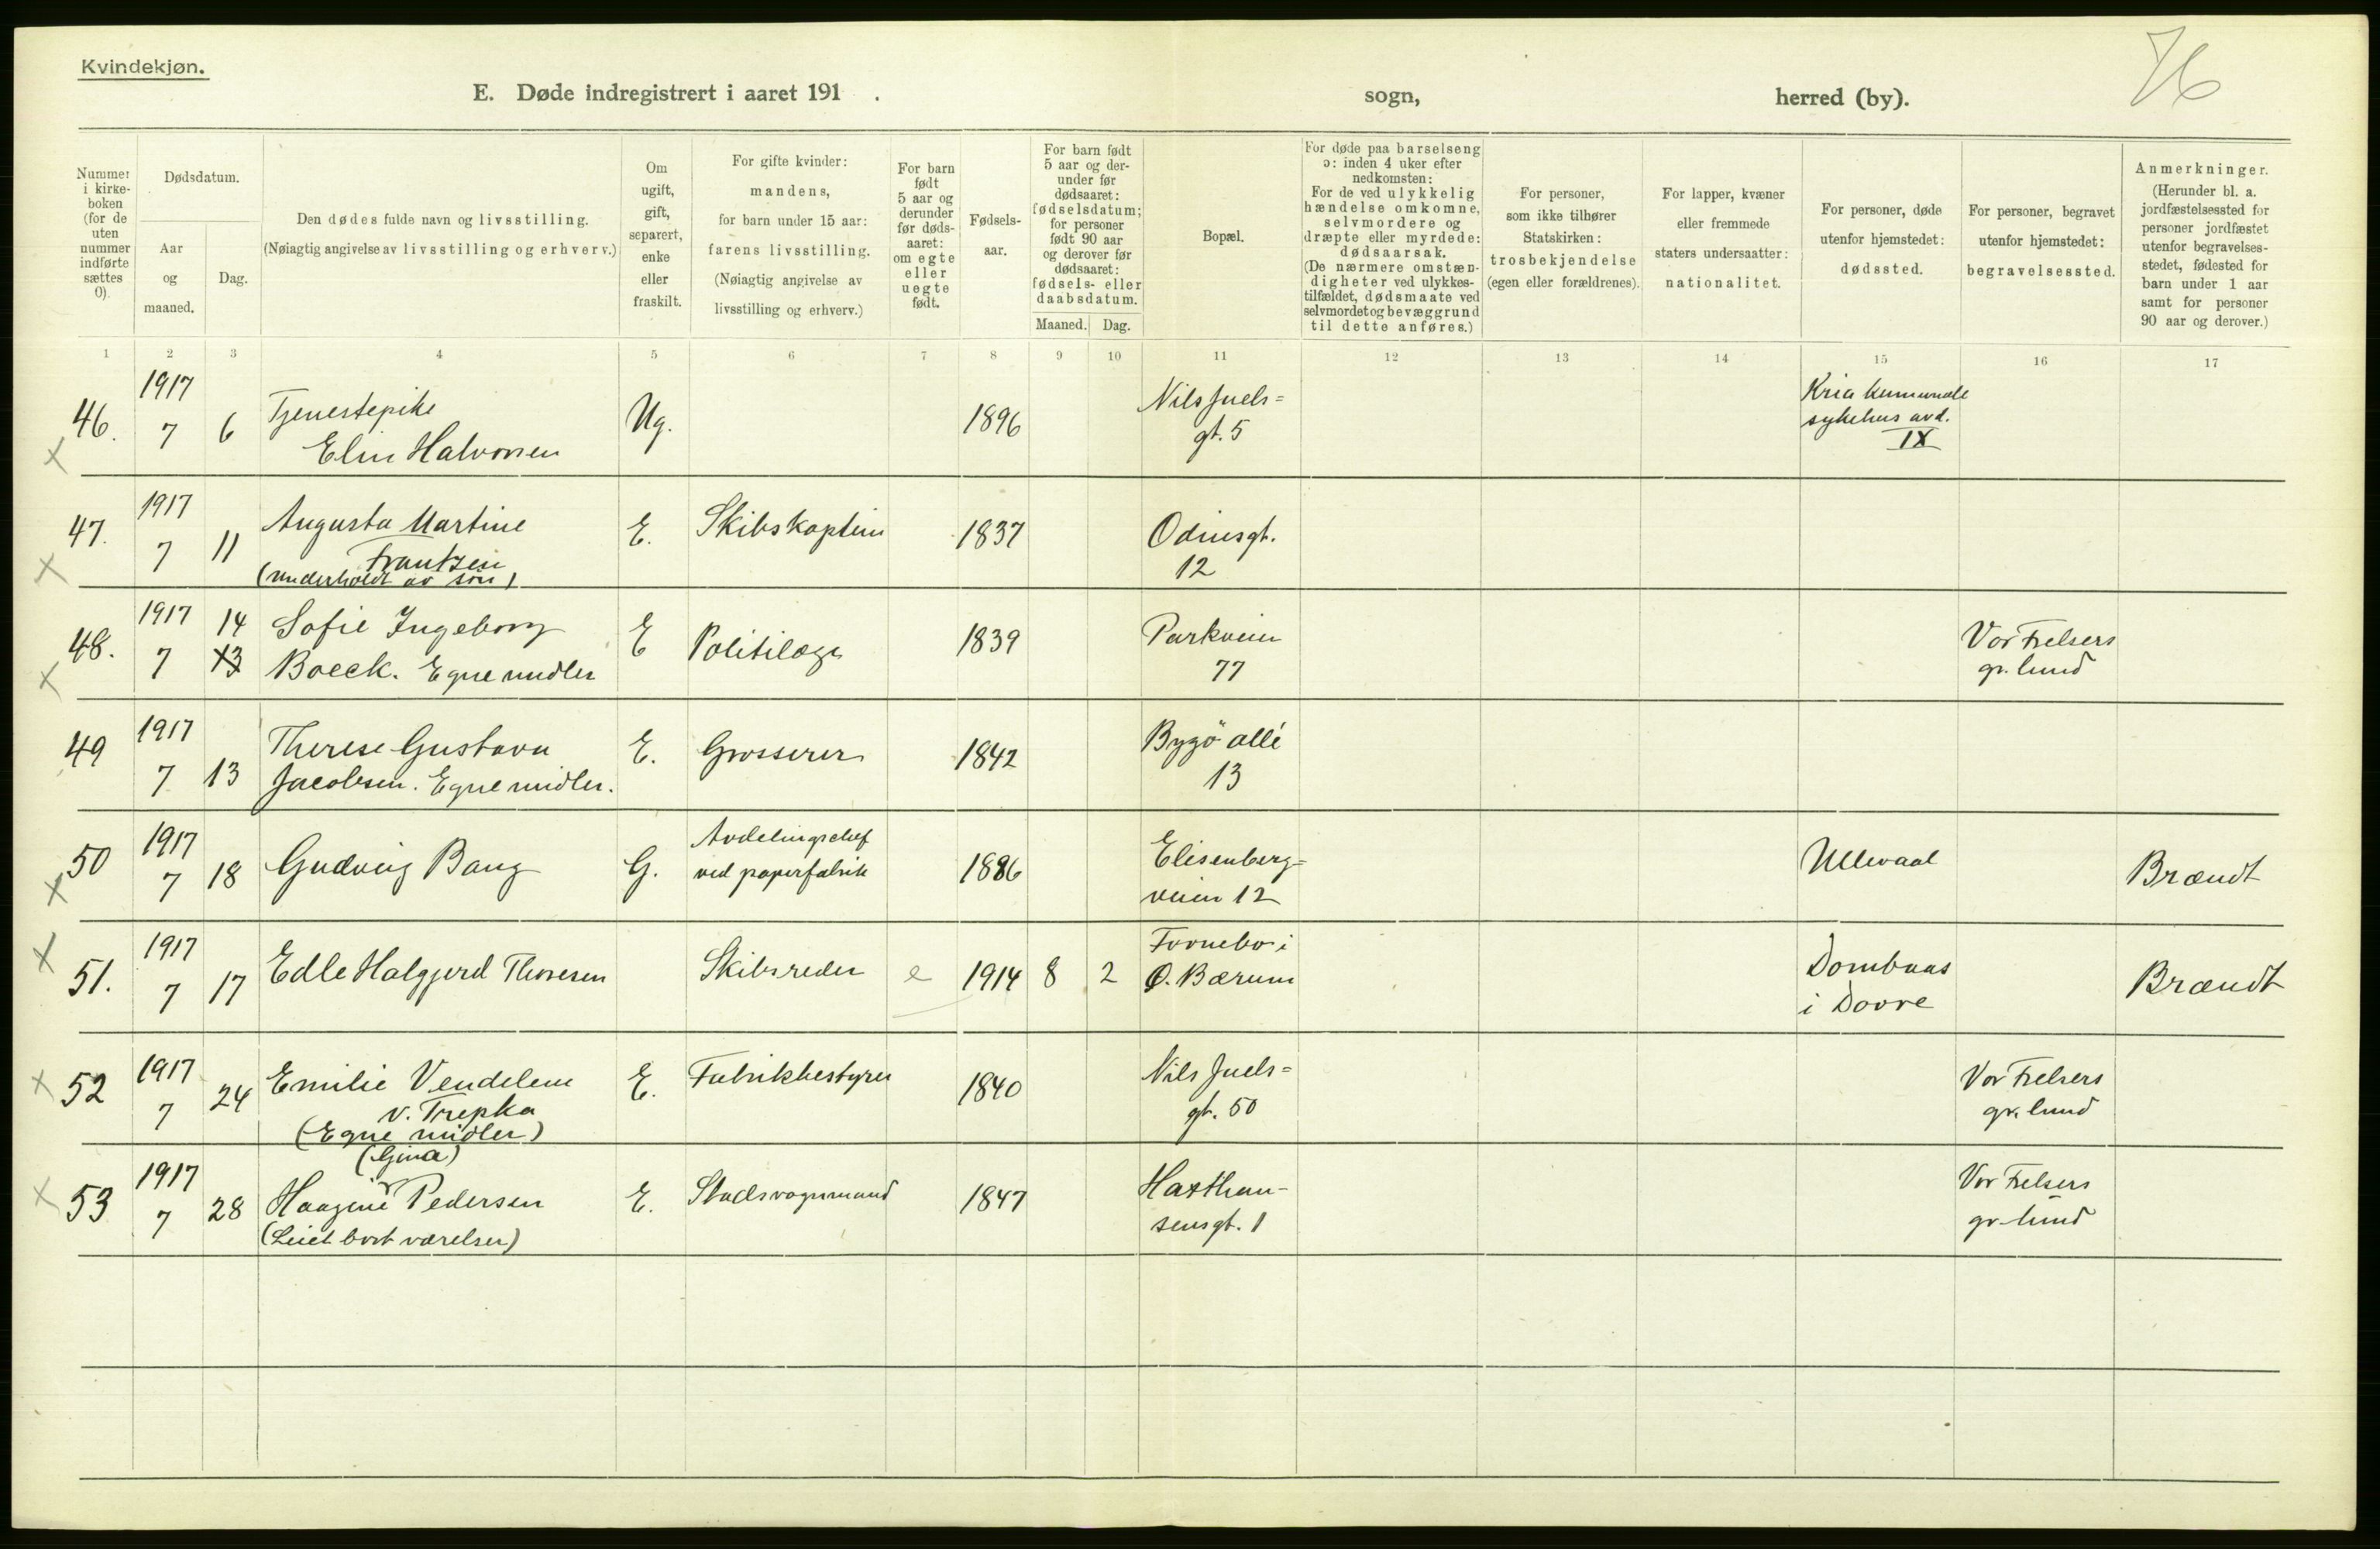 Kvindekjøn.
76
E. Døde indregistrert i aaret 191 . sogn, herred (by).
Nummer i kirkeboken (for de uten nummer indførte sættes 0).
Dødsdatum.
Aar og maaned.
Dag.
Den dødes fulde navn og livsstilling.
(Nøiagtig angivelse av livsstilling og erhverv.)
Om ugift, gift, separert, enke eller fraskilt.
For gifte kvinder: mandens, for barn under 15 aar: farens livsstilling. (Nøiagtig angivelse av livsstilling og erhverv.)
For barn født 5 aar og derunder før dødsaaret: om egte eller uegte født.
Fødselsaar.
For barn født 5 aar og derunder før dødsaaret: fødselsdatum; for personer født 90 aar og derover før dødsaaret: fødsels- eller daabsdatum.
Maaned. Dag.
Bopæl.
For døde paa barselseng ɔ: inden 4 uker efter nedkomsten: For de ved ulykkelig hændelse omkomne, selvmordere og dræpte eller myrdede: dødsaarsak. (De nærmere omstændigheter ved ulykkestilfældet, dødsmaate ved selvmordet og bevæggrund til dette anføres.)
For personer, som ikke tilhører Statskirken: trosbekjendelse (egen eller forældrenes).
For lapper, kvæner eller fremmede staters undersaatter: nationalitet.
For personer, døde utenfor hjemstedet: dødssted.
For personer, begravet utenfor hjemstedet: begravelsessted.
Anmerkninger. (Herunder bl. a. jordfæstelsessted for personer jordfæstet utenfor begravelsesstedet, fødested for barn under 1 aar samt for personer 90 aar og derover.)
1 2 3 4 5 6 7 8 9 10 11 12 13 14 15 16 17
46. 1917 7 6 Tjenestepike
Elin Halvorsen Ug. 1896 Nils Juels=
gt. 5 Kria kumunale
sykehus avd.
IX
47. 1917 7 11 Augusta Martine
Frantzen
(underholdt av søn) E. Skibskaptein 1837 Odinsgt.
12
48. 1917 7 14 13 Sofie Ingeborg
Boeck. Egne midler E Politilæge 1839 Parkveien
77 Vor Frelsers
gr. lund
49 1917 7 13 Therese Gustava
Jacobsen. Egne midler. E. Grosserer 1842 Bygdö allé
13
50 1917 7 18 Gudveig Bang G. Avdelingschef
ved papirfabrik 1886 Elisenberg=
veien 12 Ullevaal Brændt
51. 1917 7 17 Edle Halgjerd Thoresen Skibsreder e 1914 8 2 Fornebo i
Ø. Bærum Dombaas
i Dovre Brændt
52 1917 7 24 Emilie Vendelene
v. Trepka
(Egne midler) E. Fabrikbestyrer 1840 Nils Juels=
gt. 50 Vor Frelsers
gr. lund
53 1917 7 28 (Gina)
Haagine Pedersen
(Leiet bort værelser) E. Stadsvognmand 1847 Haxthau-
sensgt. 1 Vor Frelsers
gr. lund